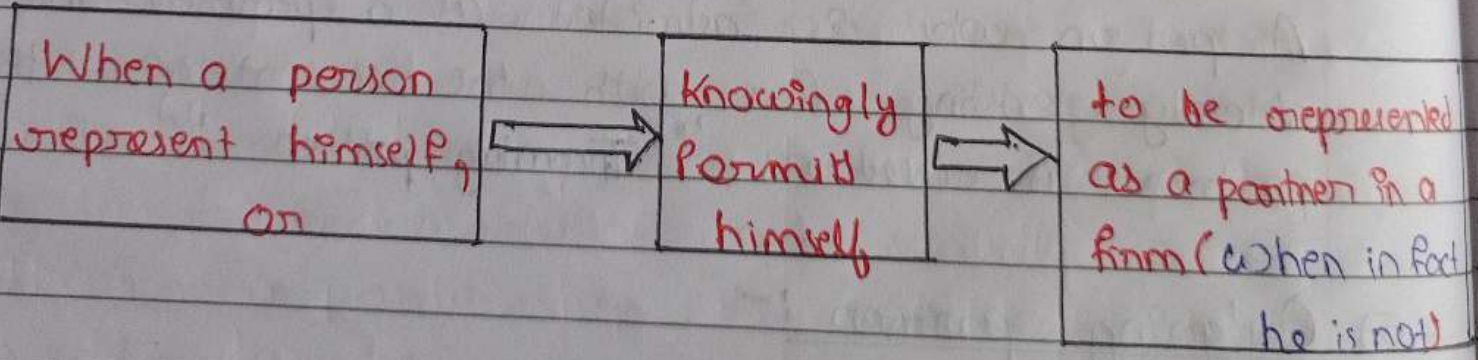 When a person
represent himself,
or
Knowingly
Permits
himself
to be represented
as a partner in a
firm (when in fact
he is not)